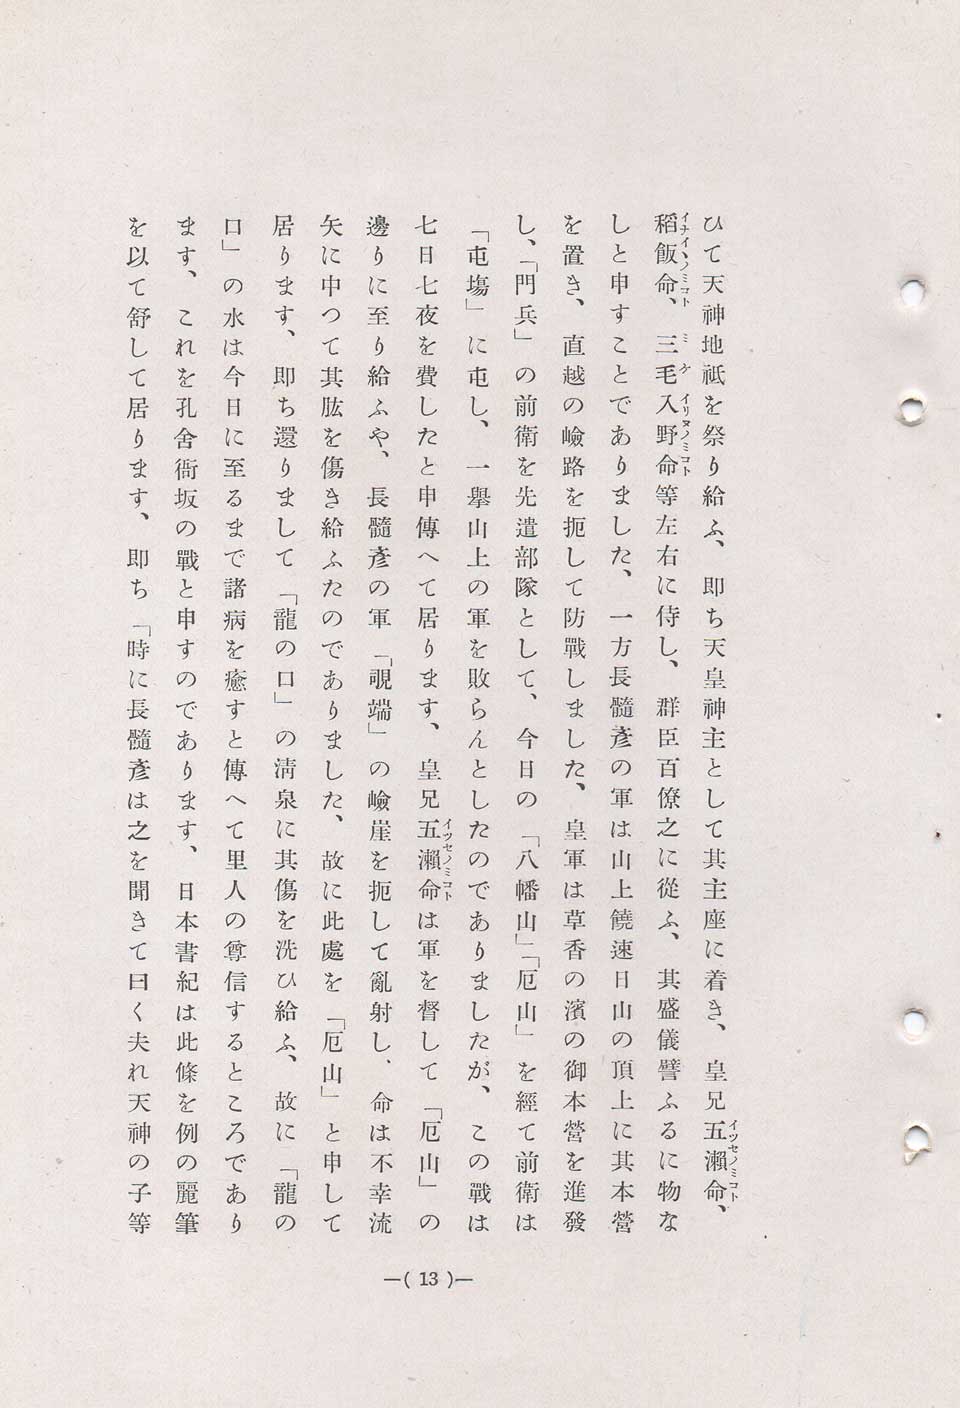 ひて天神地祗を祭り給ふ、即ち天皇神主として其主座に着き、皇兄五瀨命、
稻飯命、三毛入野命等左右に侍し、群臣百僚之に從ふ、其盛儀譬ふるに物な
しと申すことでありました、一方長髓彥の軍は山上饒速日山の頂上に其本營
を置き、直越の嶮路を扼して防戰しました、皇軍は草香の濱の御本營を進發
し、「門兵」の前衛を先遣部隊として、今日の「八幡山」「厄山」を經て前衛は
「屯塲」に屯し、一擧山上の軍を敗らんとしたのでありましたが、この戰は
七日七夜を費したと申傳へて居ります、皇兄五瀨命は軍を督して「厄山」の
邊りに至り給ふや、長髓彥の軍「覗端」の嶮崖を扼して亂射し、命は不幸流
矢に中つて其肱を傷き給ふたのでありました、故に此處を「厄山」と申して
居ります、即ち還りまして「龍の口」の淸泉に其傷を洗ひ給ふ、故に「龍の
口」の水は今日に至るまで諸病を癒すと傳へて里人の尊信するところであり
ます、これを孔舍衙坂の戰と申すのであります、日本書紀は此條を例の麗筆
を以て舒して居ります、即ち「時に長髓彥は之を聞きて曰く夫れ天神の子等
—( 13 )—